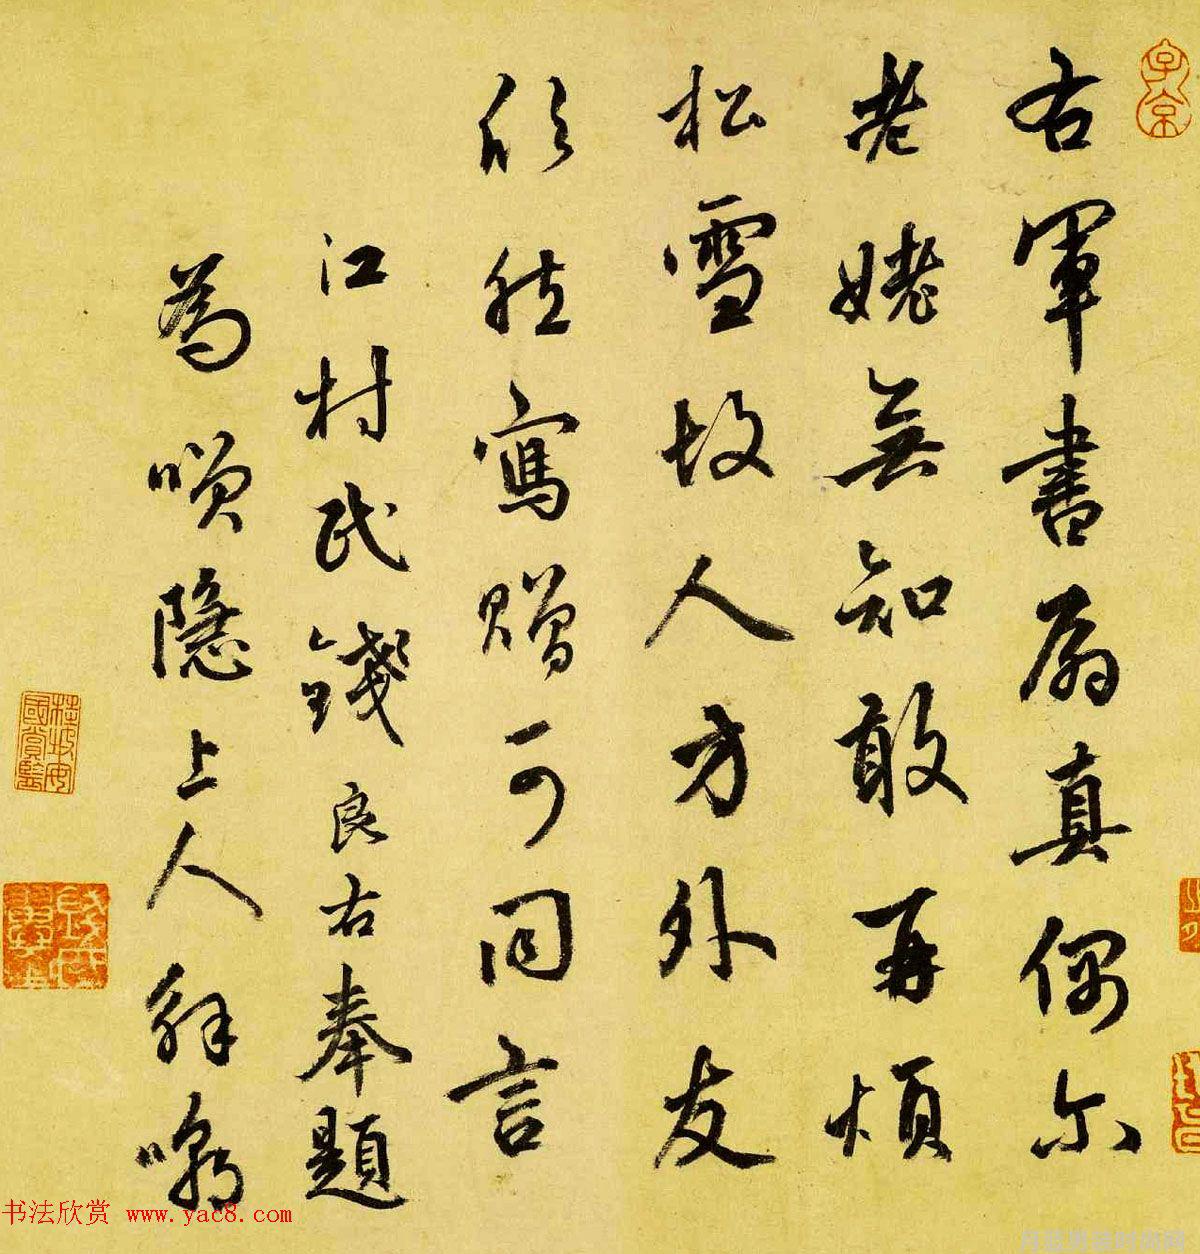 右軍書扇真偶尔
老姥無知敢再煩
松雪故人方外友
欣然寫贈可同言
江村民錢良右奉題
為順隱上人解嘲
子京
書法欣赏 www.yac8.com